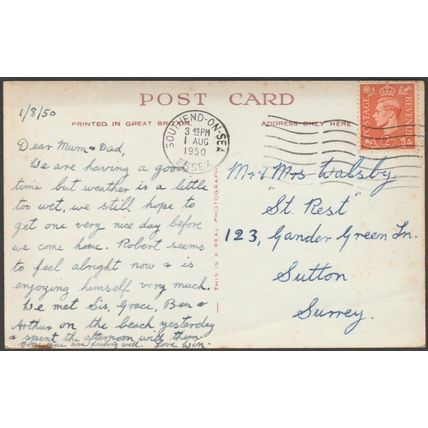 POST CARD
PRINTED IN GREAT BRITAIN.
ADDRESS ONLY HERE
1/8/50
Dear Mum & Dad,
We are having a good
time but weather is a little
too wet, we still hope to
get one very nice day before
we come home. Robert seems
to feel alright now & is
enjoying himself very much.
We met Sis, Grace, Ben &
Arthur on the beach yesterday
& spent the afternoon with them.
you are feeling well. Love Win.
THIS IS A REAL PHOTOGRAPH
SOUTHEND-ON-SEA
3 45PM
1 AUG
1950
ESSEX
POSTAGE
REVENUE
Mr & Mrs Walsby
"St Rest"
123, Gander Green Ln.
Sutton
Surrey.